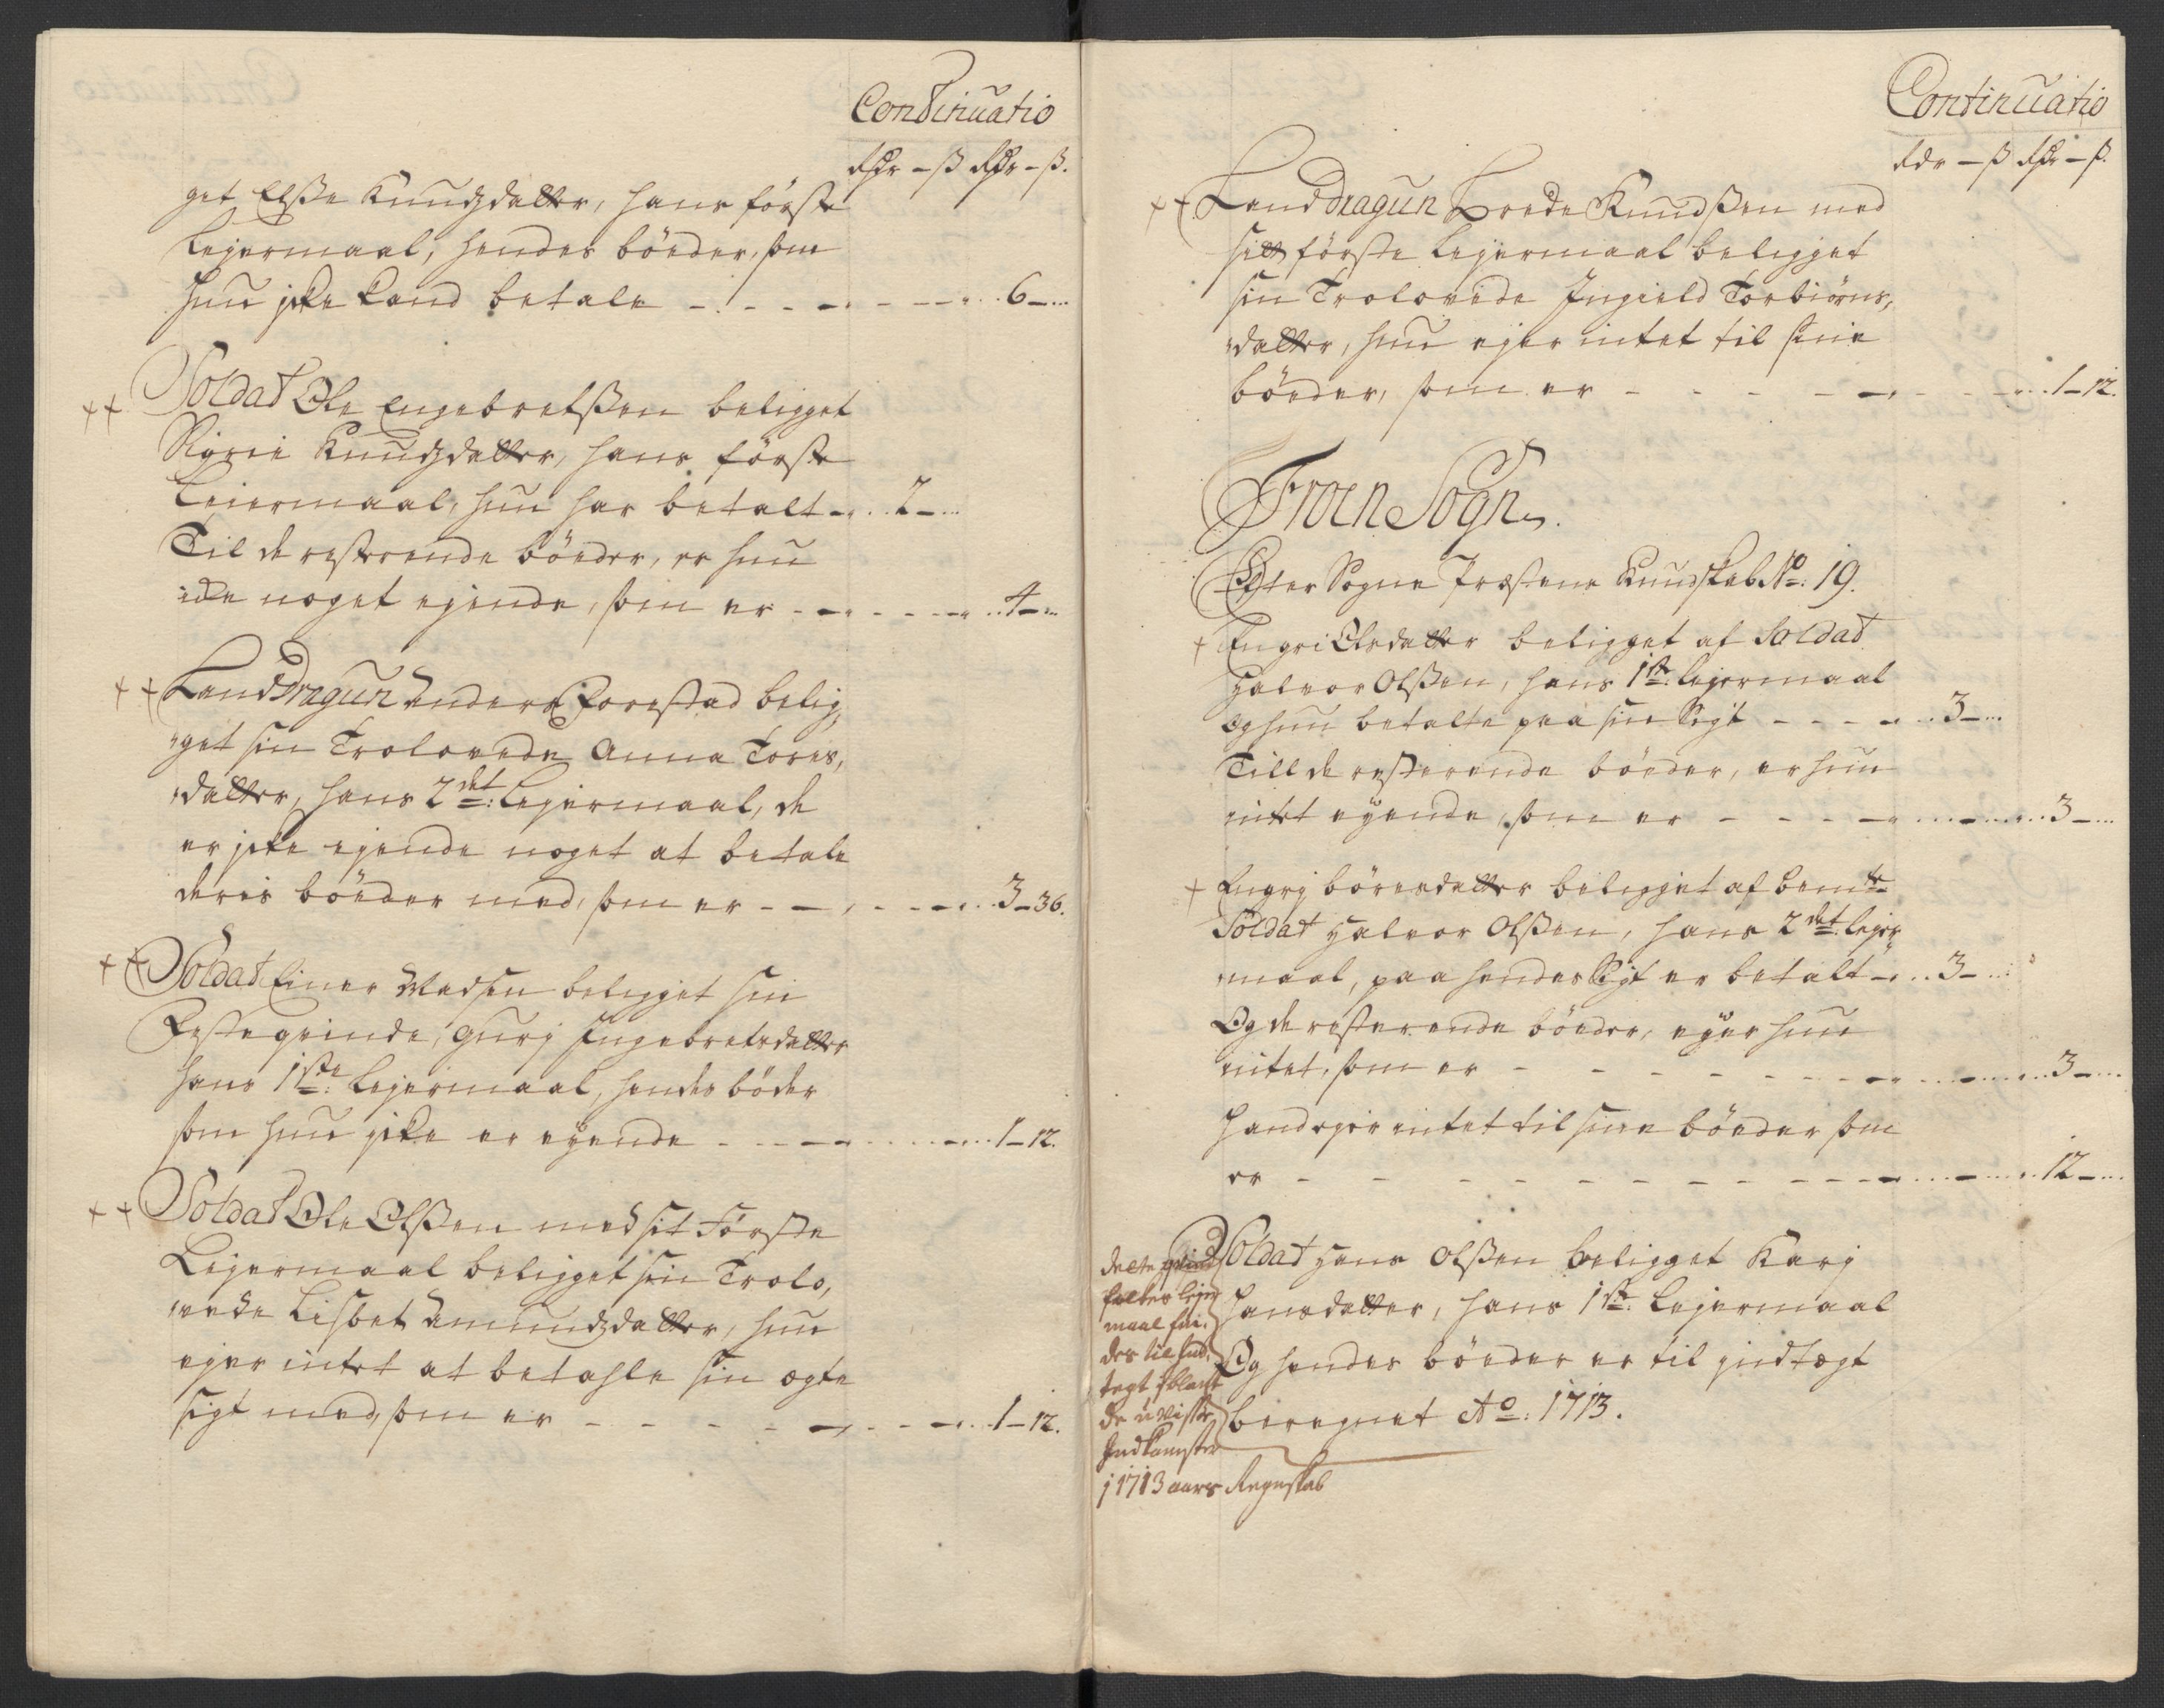 Continuatio
Rdr - ß Rdr - ß.
get Elsse Knudzdatter, hans förste
Lejermaal, hendes böeder, som
hun icke kand betale - - - - - - - 6 - ...
++ Soldat Ole Engebretssen beligget
Sigrie Knudzdatter, hans förste
Leiermaal, hun har betalt - .. 2 - ...
Til de resterende böeder, er hun
icke noget ejende, som er - - - - - - 4 - ...
++ Land Dragun Anders Forestad belig,
get sin Trolovede Anna Tores,
datter, hans 2det: Lejermaal, de
er icke ejende noget at betale
deris böeder med, som er - - - - - 3 - 36.
++ Soldat Einer Madsen beligget sin
Festeqvinde, Gurj Ingebretsdatter
hans 1ste: Lejermaal, hendes böder
som hun icke er eyende - - - - - - 1 - 12.
++ Soldat Ole Olssen med sit Förste
Lejermaal beligget sin Trolo,
vede Lisbet Amundzdatter, hun
ejer intet at betahle sin ægte
sigt med, som er - - - - - - - 1 - 12.
Continuatio
Rdr - ß Rdr - ß.
++ Land dragun Knudssen med
sitt förste Lejermaal beligget
sin Trolovede Ingield Torbiörns,
datter, hun ejer intet til sine
böeder, som er - - - - - - - 1 - 12.
Froen Sogn.
Efter Sogne Præstens Kundskab No: 19.
+ Engri Olsdatter beligget af Soldat
Halvor Olssen, hans 1ste: Lejermaal
og hun betalte paa sin Sigt - - - - .. 3 - ...
Till de resterende böeder, er hun
intet eyende, som er - - - - - - 3 - ...
+ Engrj börresdatter beligget af bemte
Soldat Halvor Olssen, hans 2det: Lejer,
maal, paa hendes Sigt er betalt - .. 3 - ...
Og de resterende böeder, eyer hun
intet, som er - - - - - - - - 3 - ...
Hand ejer intet til sine böeder som
er - - - - - - - - - - - 12 - ...
Soldat Hans Olssen beligget Karj
Hansdatter, hans 1ste: Lejermaal
Og hendes böeder er til indtægt
beregnet Ao: 1713.
dette qvind
folkes Leje
maal fin,
des til Ind,
tegt iblant
de uvisse
Indkomster
j 1713 aars Regnskab